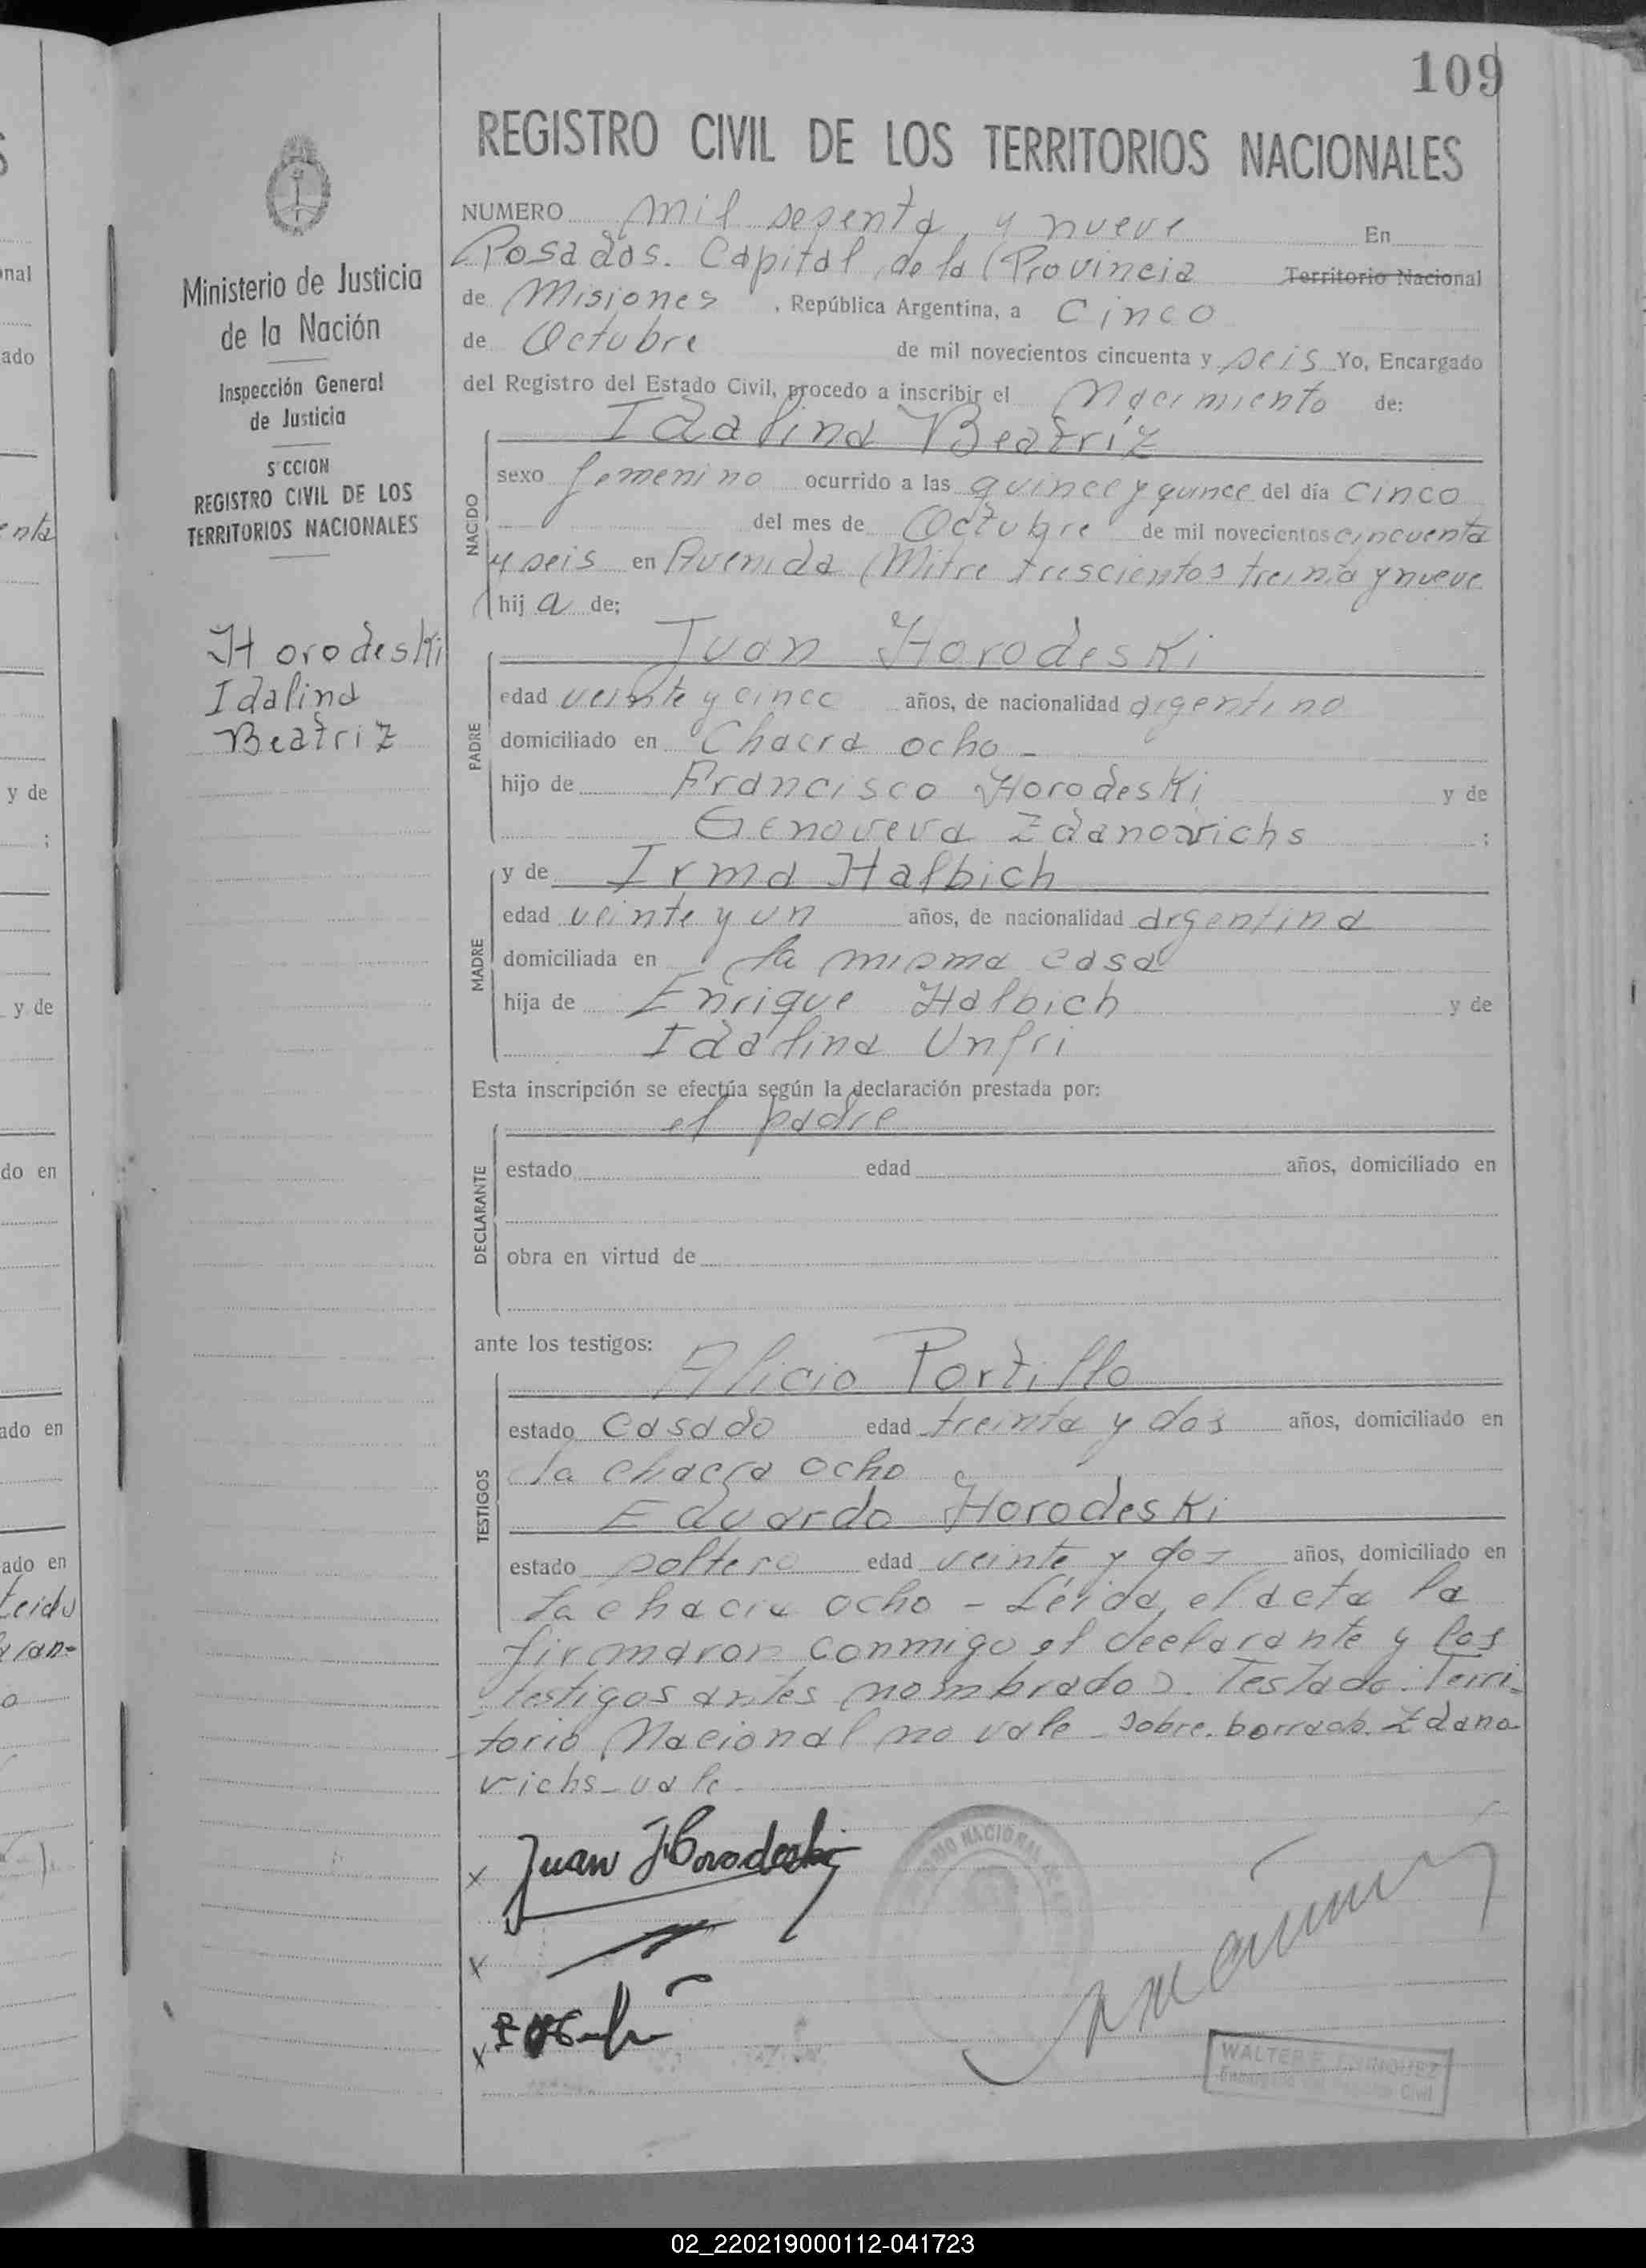 109
REGISTRO CIVIL DE LOS TERRITORIOS NACIONALES
Ministerio de Justicia
de la Nación
Inspección General
de Justicia
S CCION
REGISTRO CIVIL DE LOS
TERRITORIOS NACIONALES
Horodeski
Idalina
Beatriz
NUMERO mil sesenta y nueve En
Posadas. Capital de la Provincia Territorio Nacional
de Misiones, República Argentina, a Cinco
de Octubre de mil novecientos cincuenta y seis Yo, Encargado
del Registro del Estado Civil, procedo a inscribir el Nacimiento de:
Idalina Beatriz
NACIDO
sexo femenino ocurrido a las quince y quince del día cinco
del mes de Octubre de mil novecientos cincuenta
y seis en Avenida Mitre trescientos treinta y nueve
hij a de;
Juan Horodeski
PADRE
edad veinte y cinco años, de nacionalidad argentino
domiciliado en Chacra ocho -
hijo de Francisco Horodeski y de
Genoveva Zdanovichs ;
MADRE
y de Irma Halbich
edad veinte y un años, de nacionalidad argentina
domiciliada en la misma casa
hija de Enrique Halbich y de
Idalina Unfri
Esta inscripción se efectúa según la declaración prestada por:
el padre
DECLARANTE
estado edad años, domiciliado en
obra en virtud de
ante los testigos:
Alicio Portillo
TESTIGOS
estado casado edad treinta y dos años, domiciliado en
la chacra ocho
Eduardo Horodeski
estado soltero edad veinte y dos años, domiciliado en
la chacra ocho - Leída el acta la
firmaron conmigo el declarante y los
testigos antes nombrados. Testado: Terri-
torio Nacional no vale - sobre borrado. Zdano
vichs - vale -
x Juan Horodeski
x
x
WALTER
02_220219000112-041723